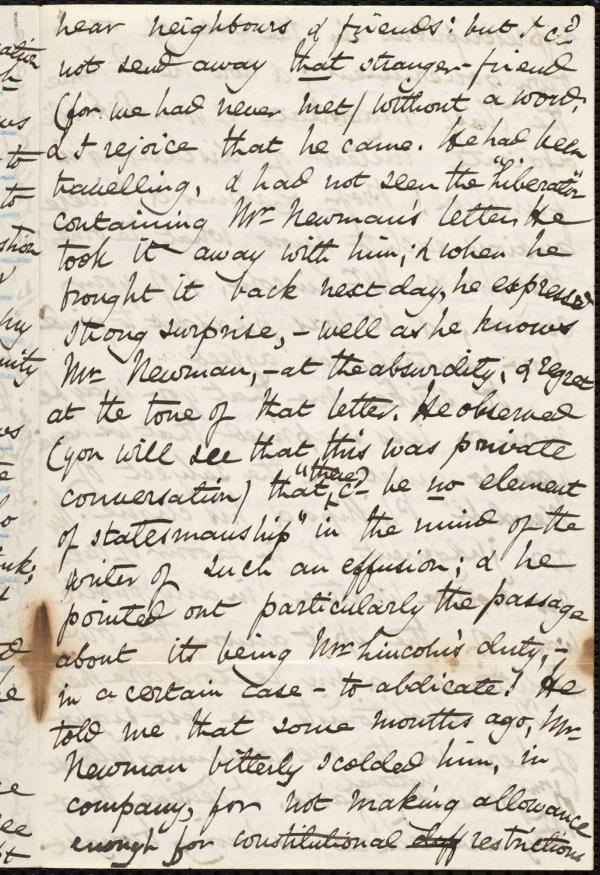 near neighbours & friends: but I cd
not send away that stranger-friend
(for we had never met) without a word;
& I rejoice that he came. He had been
travelling, & had not seen the "Liberator"
containing Mr Newman's letter. He
took it away with him; & when he
brought it back next day, he expressed
strong surprise, - well as he knows
Mr Newman, - at the absurdity, & regret
at the tone of that letter. He observed
(you will see that this was private
conversation) that "there cd be no element
of statesmanship" in the mind of the
writer of such an effusion; & he
pointed out particularly the passage
about its being Mr Lincoln's duty, -
in a certain case - to abdicate! He
told me that some months ago, Mr
Newman bitterly scolded him, in
company, for not making allowance
enough for constitutional diff restrictions